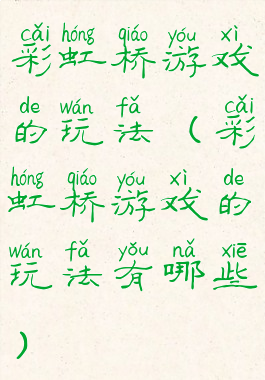 cǎi hóng qiáo yóu xì
彩虹桥游戏
de wán fǎ cǎi
的玩法（彩
hóng qiáo yóu xì de
虹桥游戏的
wán fǎ yǒu nǎ xiē
玩法有哪些
）